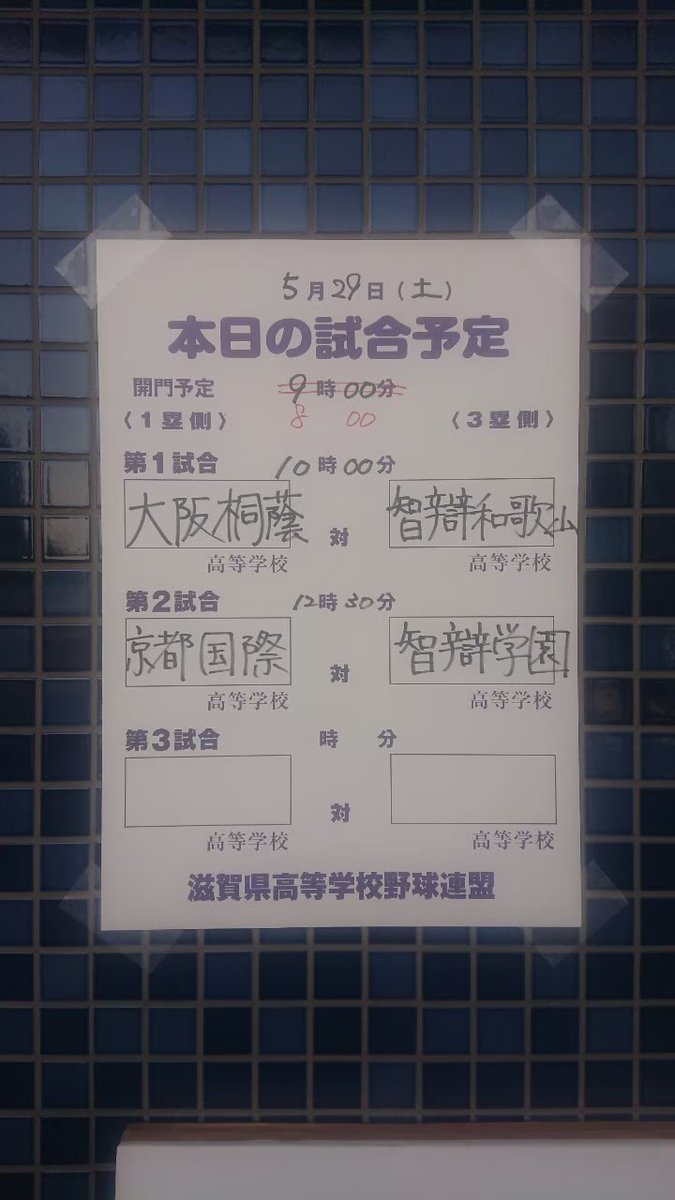 5月29日(土)
本日の試合予定
開門予定 9時00分
〈1塁側〉 8 00 〈3塁側〉
第1試合 10時00分
大阪桐蔭 対 智辯和歌山
高等学校 高等学校
第2試合 12時30分
京都国際 対 智辯学園
高等学校 高等学校
第3試合 時 分
対
高等学校 高等学校
滋賀県高等学校野球連盟